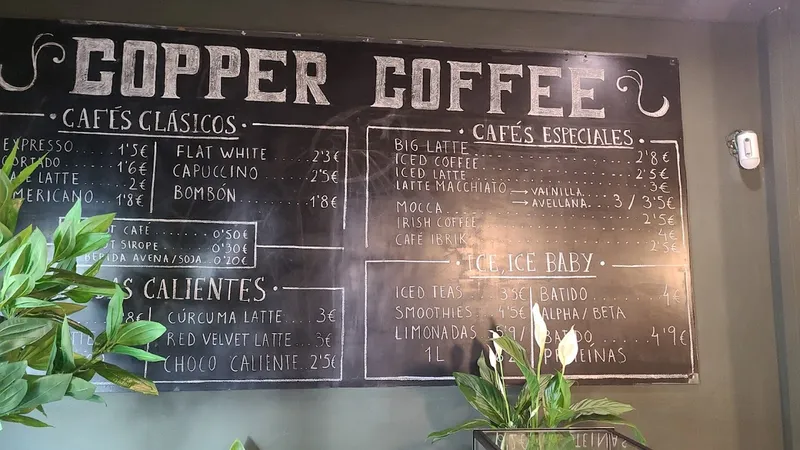 COPPER COFFEE
CAFÉS CLÁSICOS
EXPRESSO 1'5€
CORTADO 1'6€
LATTE 2€
MERICANO 1'8€
FLAT WHITE 2'3€
CAPUCCINO 2'5€
BOMBÓN 1'8€
CAFÉ 0'50€
SIROPE 0'30€
BEBIDA AVENA/SOJA 0'20€
AS CALIENTES
8€
CÚRCUMA LATTE 3€
RED VELVET LATTE 3€
CHOCO CALIENTE 2'5€
CAFÉS ESPECIALES
BIG LATTE 2'8€
ICED COFFEE 2'5€
ICED LATTE 3€
LATTE MACCHIATO → VAINILLA
→ AVELLANA 3 / 3'5€
MOCCA 2'5€
IRISH COFFEE 4€
CAFÉ IBRIK 2'5€
ICE, ICE BABY
ICED TEAS 3'5€
SMOOTHIES 4'5€
LIMONADAS
1L
BATIDO 4€
ALPHA / BETA
BATIDO 4'9€
PROTEINAS